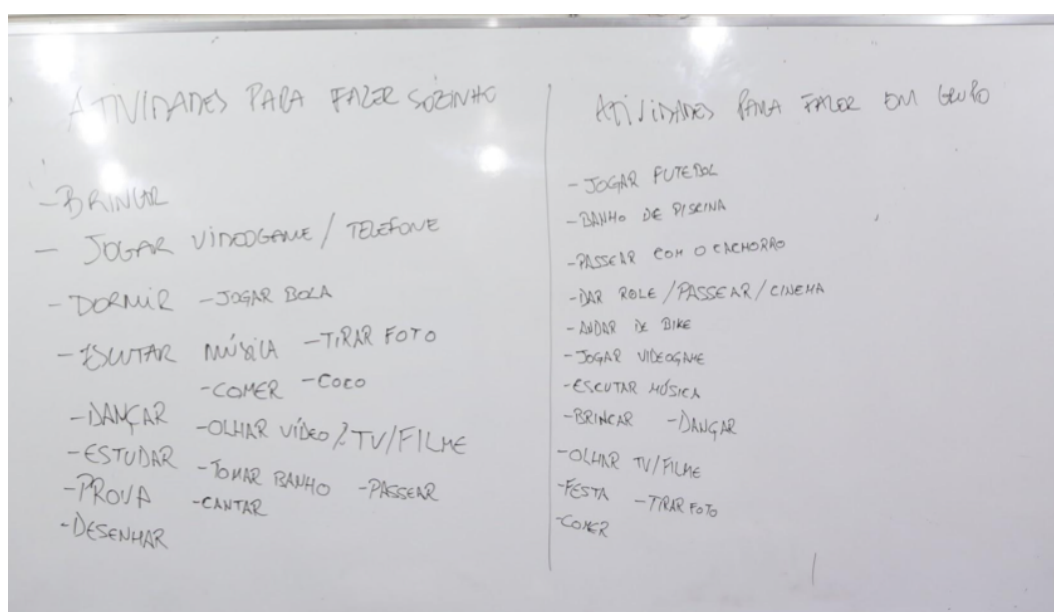 ATIVIDADES PARA FAZER SOZINHO
- BRINCAR
- JOGAR VIDEOGAME / TELEFONE
- DORMIR - JOGAR BOLA
- ESCUTAR MÚSICA - TIRAR FOTO
- COMER - COCO
- DANÇAR - OLHAR VÍDEO / TV/FILME
- ESTUDAR - TOMAR BANHO - PASSEAR
- PROVA - CANTAR
- DESENHAR
ATIVIDADES PARA FAZER EM GRUPO
- JOGAR FUTEBOL
- BANHO DE PISCINA
- PASSEAR COM O CACHORRO
- DAR ROLE / PASSEAR / CINEMA
- ANDAR DE BIKE
- JOGAR VIDEOGAME
- ESCUTAR MÚSICA
- BRINCAR - DANÇAR
- OLHAR TV/FILME
- FESTA - TIRAR FOTO
- COMER